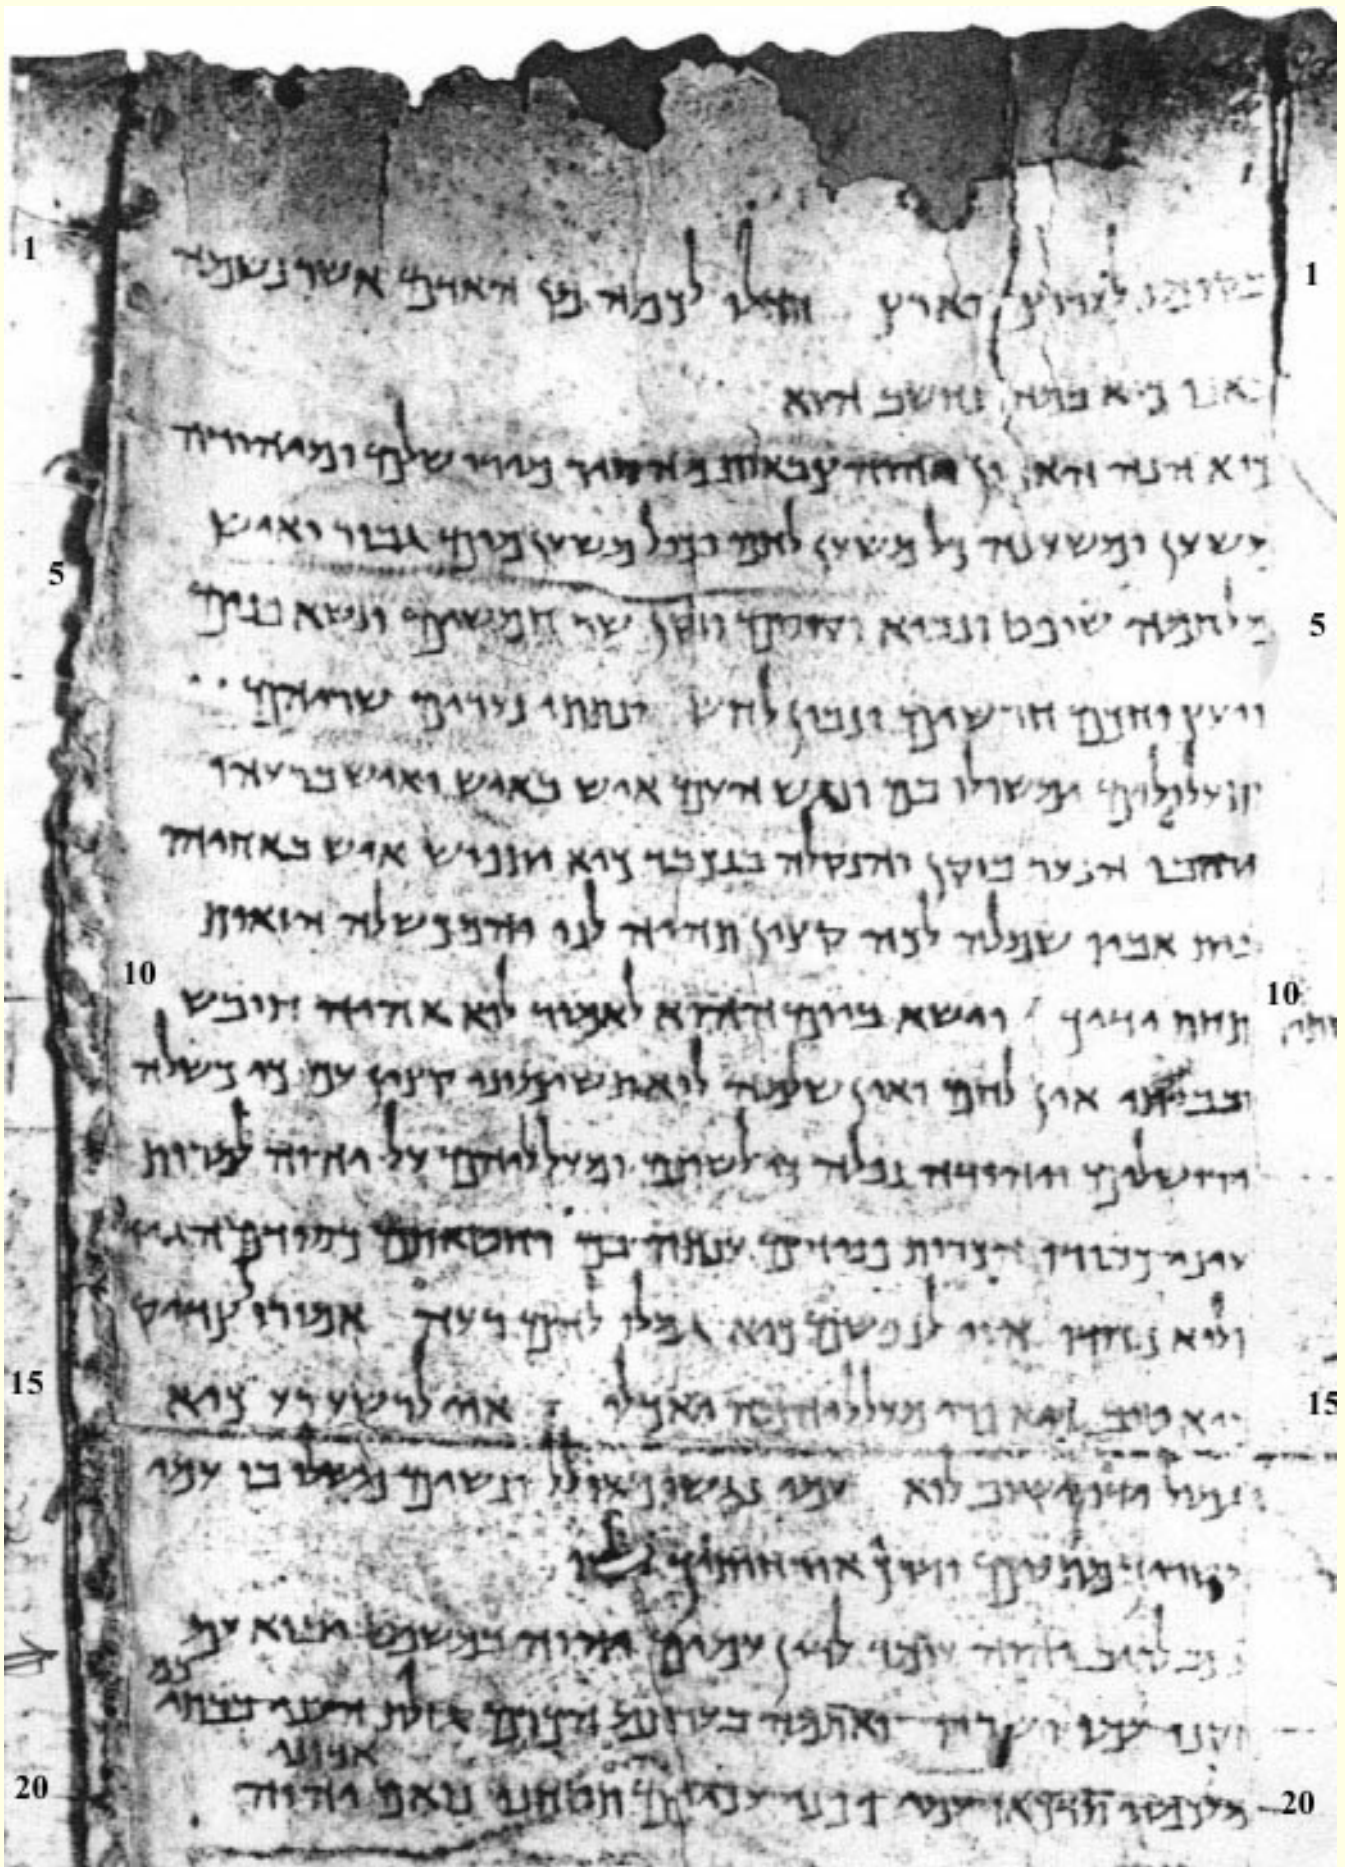 בקומו לערוץ הארץ חדלו לכמה מן האדם אשר נשמה
באפו כיא במה נחשב הוא
כיא הנה האדון יהוה צבאות מסיר מירושלים ומיהודה
משען ומשענה כל משען לחם וכול משען מים גבור ואיש
מלחמה שופט ונביא וקוסם וזקן שר חמשים ונשא פנים
ויעץ וחכם חרשים ונבון לחש ונתתי נערים שריהם
ותעלולים ימשולו בם ונגש העם איש באיש ואיש ברעהו
ירהבו הנער בזקן והנקלה בנכבד כיא יתפוש איש באחיהו
בית אביו שמלה לכה קצין תהיה לנו והמכשלה הזואת
תחת ידיך ישא ביום ההואה לאמור לוא אהיה חובש
ובביתי אין לחם ואין שמלה לוא תשימוני קצין עם כי כשלה
ירושלים ויהודה נפלה כי לשונם ומעלליהם על יהוה למרות
עיני כבודו הכרת פניהם ענתה בם וחטאותם כסודם הגידו
ולוא כחדו אוי לנפשם כיא גמלו להם רעה אמורו לצדיק
כיא טוב כיא פרי מעלליהמה יאכלו אוי לרשע רע כיא
גמול ידיו ישוב לוא עמי נגשו מעולל ונשים משלו בו עמי
מאשריך מתעים ודרך אורחותיך בלעו
נצב לריב יהוה עומד לדין עמים יהוה במשפט יבוא עם
זקני עמו ושריו ואתמה בערתם הכרם גזלת העני בבתיכם
אדוני
מלכמה תדכאו עמי ופני עניים תטחנו נואם יהוה
1
5
10
15
20
1
5
10
15
20